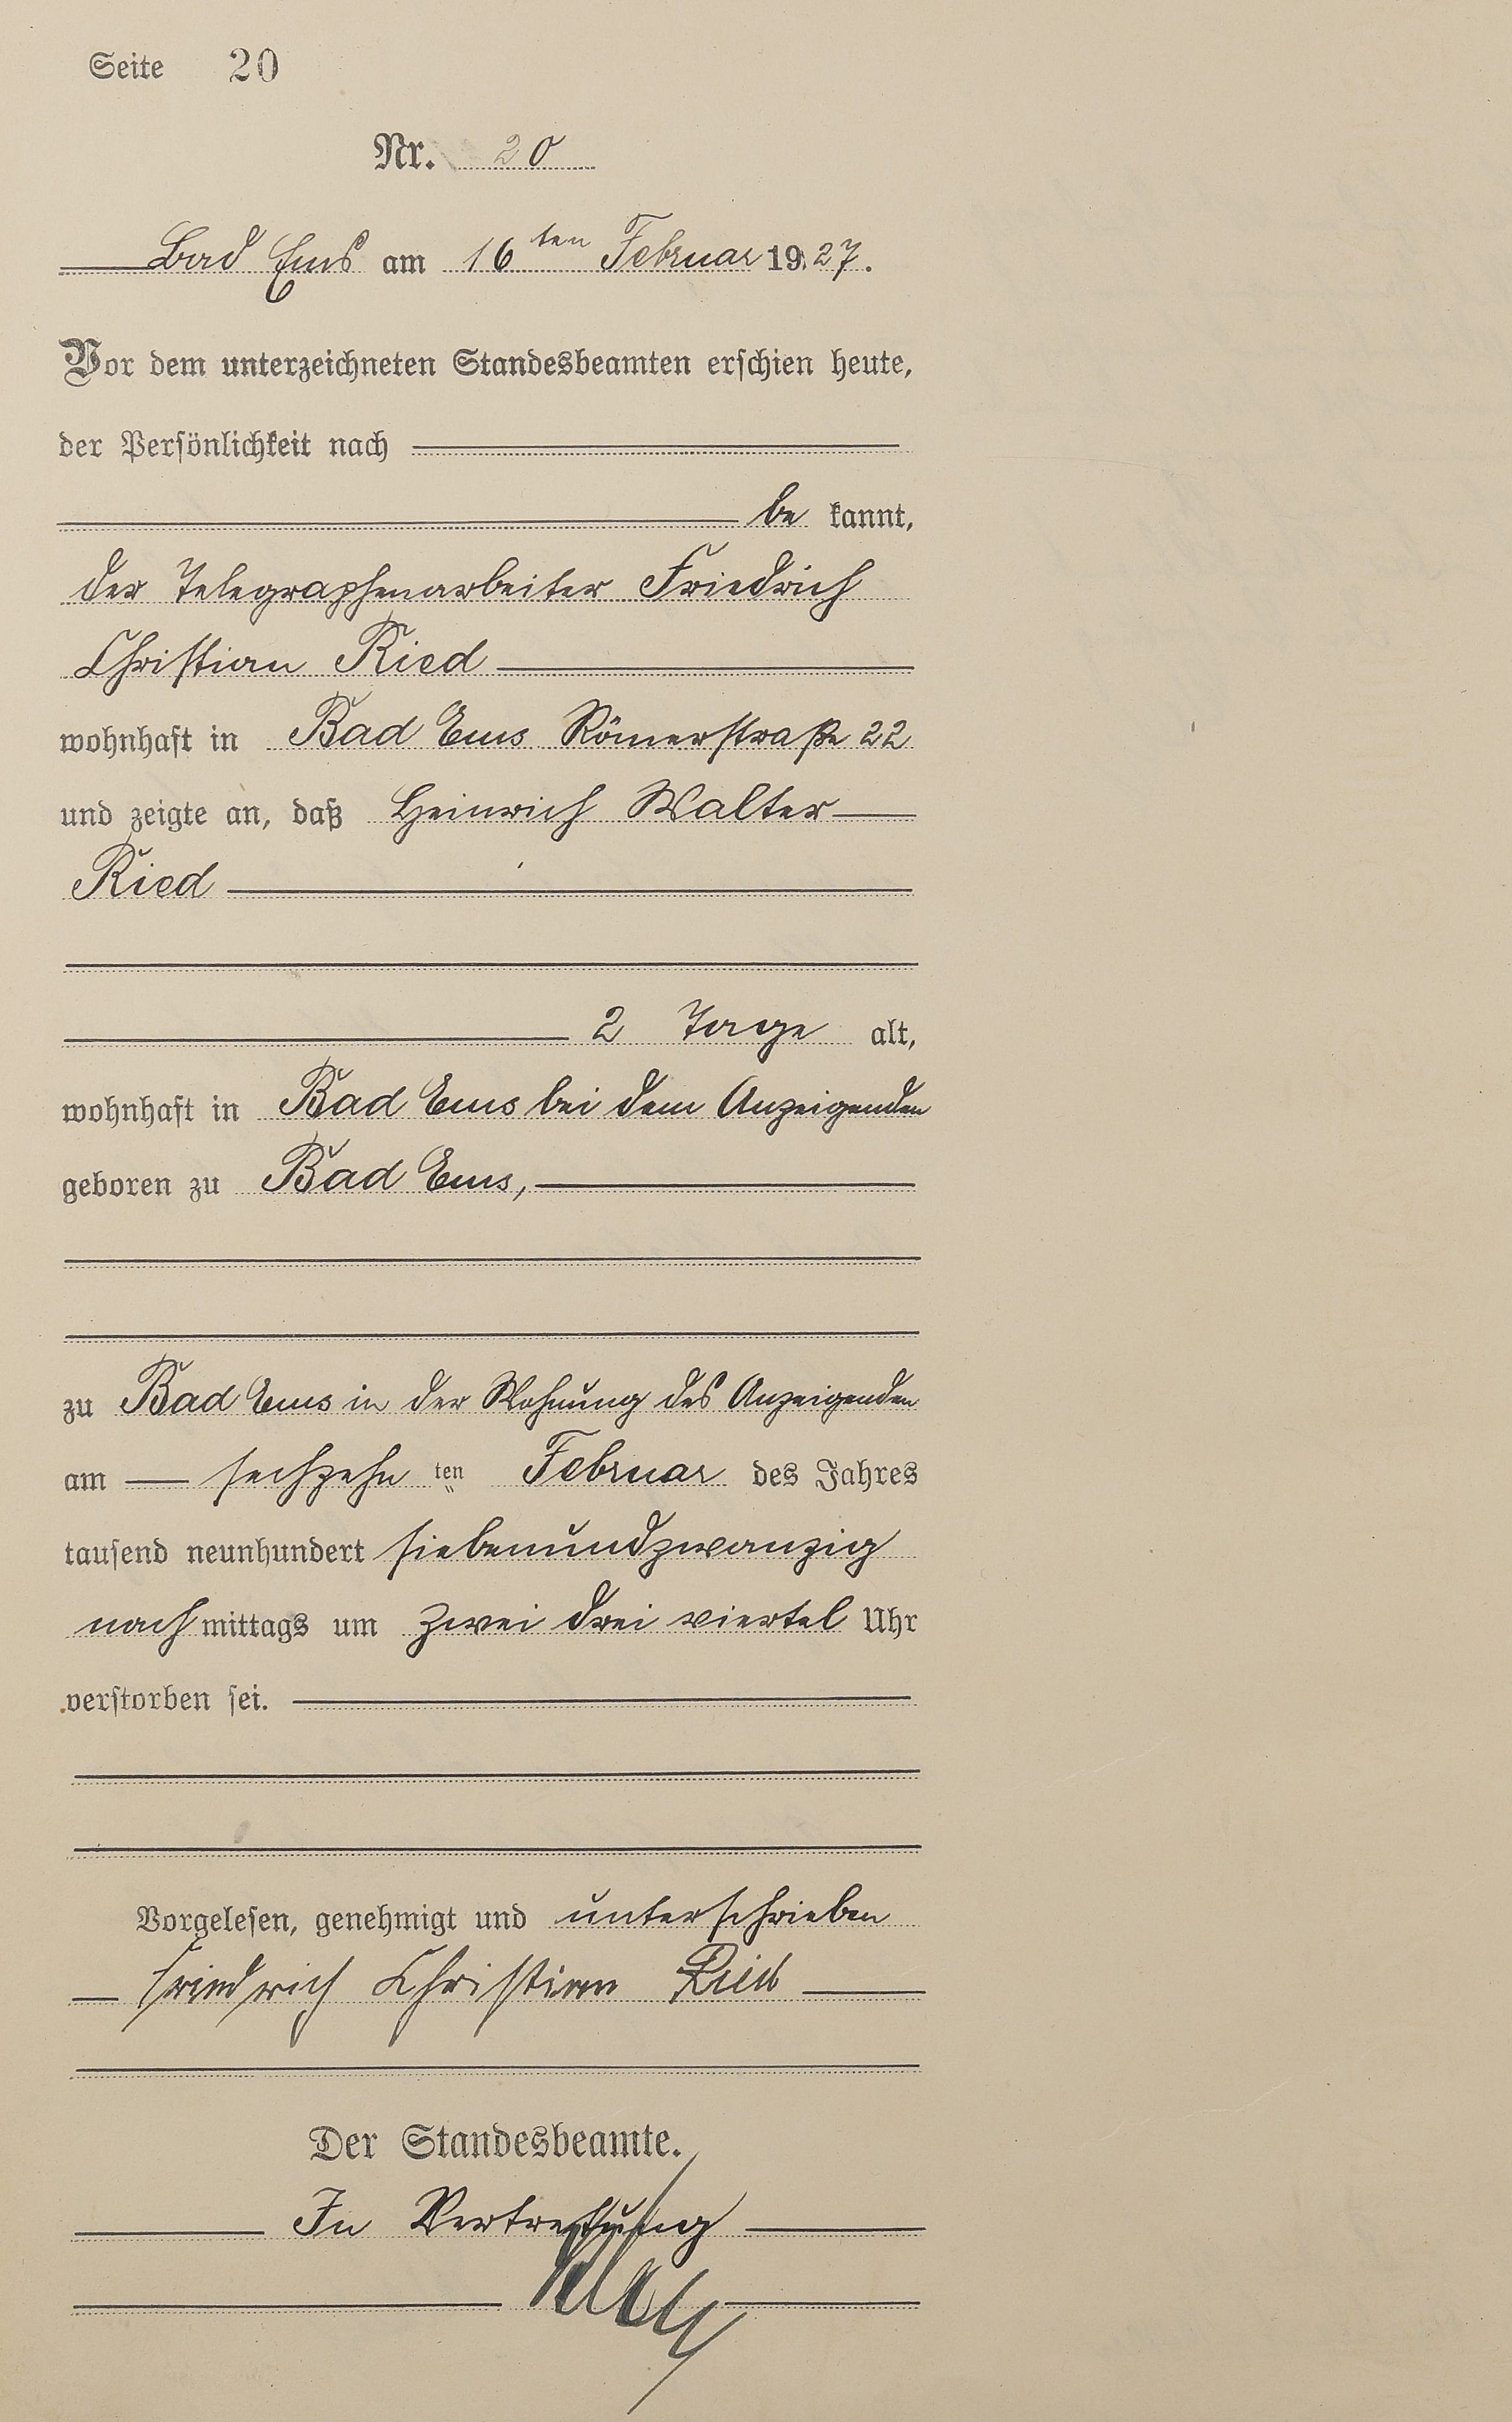 Seite 20
Nr. 20
Bad Ems am 16ten Februar 1927.
Vor dem unterzeichneten Standesbeamten erschien heute,
der Persönlichkeit nach
be kannt,
der Telegraphenarbeiter Friedrich
Christian Ried
wohnhaft in Bad Ems Römerstraße 22
und zeigte an, daß Heinrich Walter
Ried
2 Tage alt,
wohnhaft in Bad Ems bei dem Anzeigenden
geboren zu Bad Ems,
zu Bad Ems in der Wohnung des Anzeigenden
am sechzehn ten Februar des Jahres
tausend neunhundert siebenundzwanzig
nach mittags um zwei drei viertel Uhr
verstorben sei.
Vorgelesen, genehmigt und unterschrieben
Friedrich Christian Ried
Der Standesbeamte.
In Vertretung